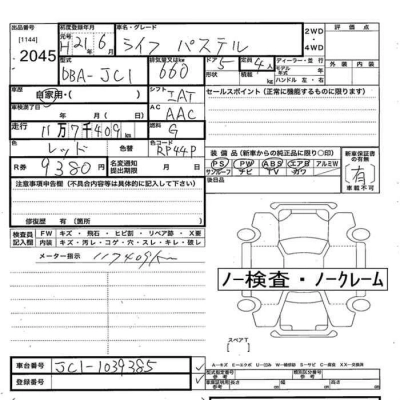 出品番号 初度登録年月 車名・グレード 2WD ・ 4WD 評価点
[1144]
2045
元号 H 21年 6月 ライフ パステル
型式 排気量又はkw ドア 定員 ディーラー・並行
DBA-JC1 660 5 4人 モデル 年
ハンドル 左・右
車歴 シフト セールスポイント(正常に機能するものに限ります)
自家用・( ) IAT
車検満了日 AC
年 月 日 AAC
走行 燃料
11万7千409km G
色 色替 色コード
レッド RP44P 装備品(新車からの純正品に限り〇印) 新車保証書の有無
R券 9380円 名変通知提出期限 月 日 PS PW ABS エアB アルミW
サンルーフ ナビ TV カワ
注意事項申告欄(不具合内容等は具体的に記載して下さい) 後日品 (有) 車載不可
修復歴 有 (箇所)
検査員記入欄 FW キズ・飛石・ヒビ割・リペア跡・X要
内装 キズ・汚レ・コゲ・穴・スレ・キレ・破レ
メーター指示 117409km
ノー検査・ノークレーム
スペアT
車台番号 JC1-1039385
登録番号